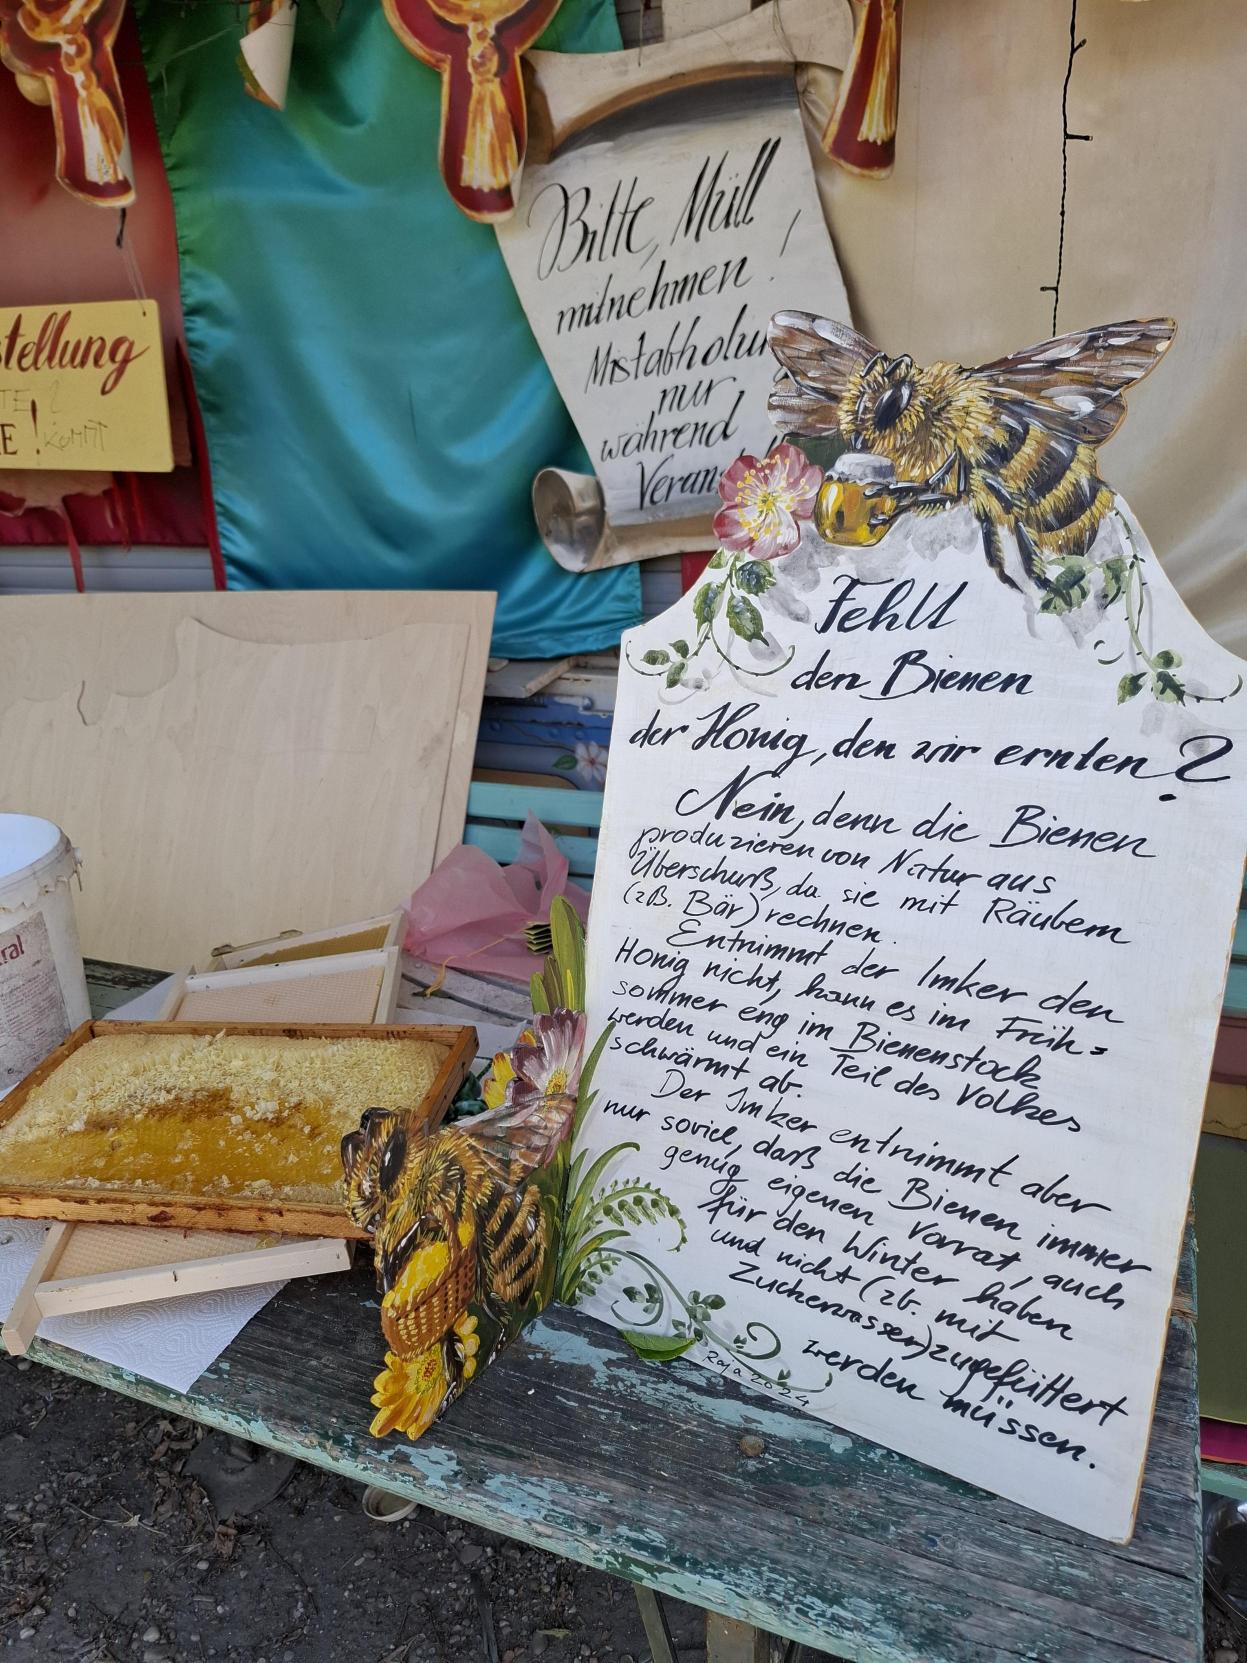 stellung
KOMMT
Bitte, Müll
mitnehmen!
Mistabholun
nur
während
Veranst
Fehlt
den Bienen
der Honig, den wir ernten?
Nein, denn die Bienen
produzieren von Natur aus
Überschuß, da sie mit Räubern
(zB. Bär) rechnen.
Entnimmt der Imker den
Honig nicht, kann es im Früh=
sommer eng im Bienenstock
werden und ein Teil des Volkes
schwärmt ab.
Der Imker entnimmt aber
nur soviel, daß die Bienen immer
genug eigenen Vorrat, auch
für den Winter haben
und nicht (zb. mit
Zuckerwasser) zugefüttert
werden müssen.
Raja 2024